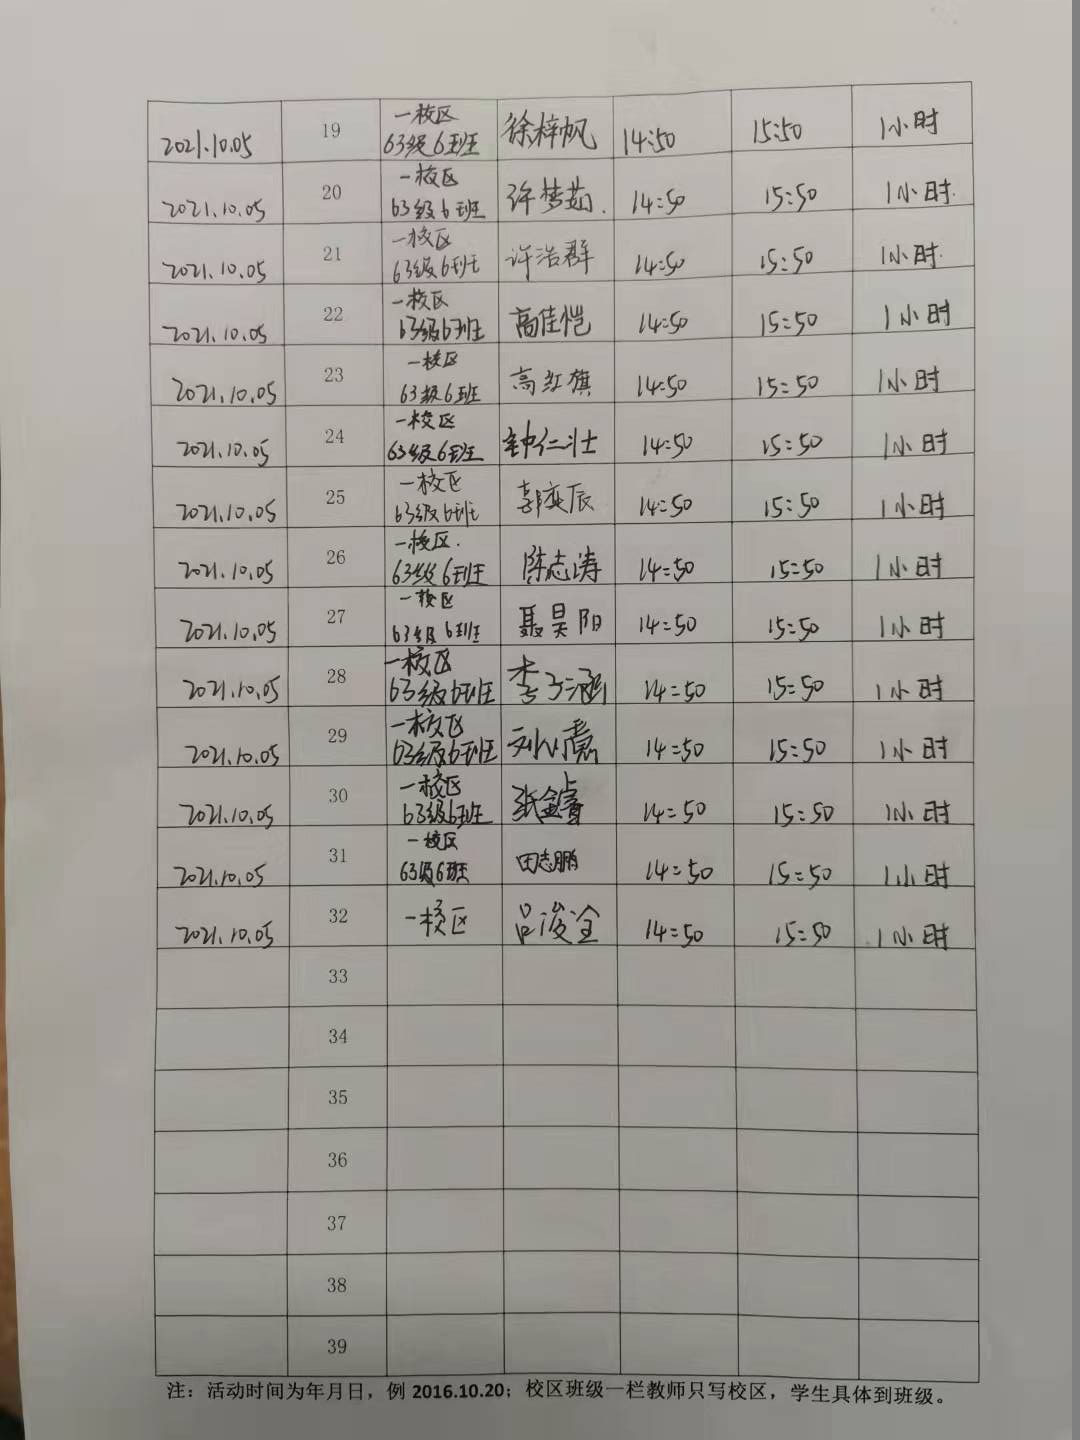 2021.10.05 19 一校区 徐梓帆 14:50 15:50 1小时
63级6班
2021.10.05 20 一校区 许梦茹. 14:50 15:50 1小时.
63级6班
2021.10.05 21 一校区 许浩群 14:50 15:50 1小时.
63级6班
2021.10.05 22 一校区 高佳恺 14:50 15:50 1小时
63级6班
2021.10.05 23 一校区 高红旗 14:50 15:50 1小时
63级6班
2021.10.05 24 一校区 钟仁壮 14:50 15:50 1小时
63级6班
2021.10.05 25 一校区 郭奕辰 14:50 15:50 1小时
63级6班
2021.10.05 26 一校区. 陈志涛 14:50 15:50 1小时
63级6班
2021.10.05 27 一校区 聂昊阳 14:50 15:50 1小时
63级6班
2021.10.05 28 一校区 李子涵 14:50 15:50 1小时
63级6班
2021.10.05 29 一校区 14:50 15:50 1小时
63级6班
2021.10.05 30 一校区 张金睿 14:50 15:50 1小时
63级6班
2021.10.05 31 一校区 田志鹏 14:50 15:50 1小时
63级6班
2021.10.05 32 一校区 吕浚全 14:50 15:50 1小时
33
34
35
36
37
38
39
注：活动时间为年月日，例 2016.10.20；校区班级一栏教师只写校区，学生具体到班级。